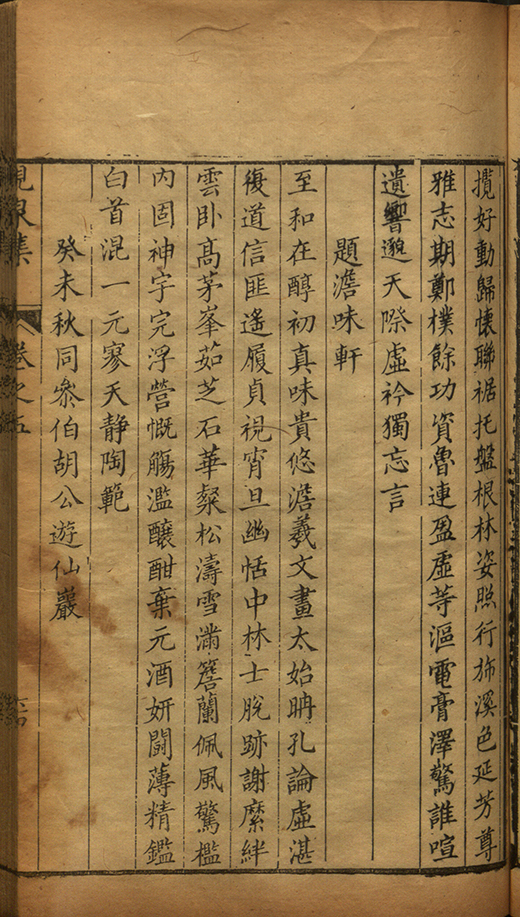 攬好動歸懷聯裾托盤根林姿照行斾溪色延芳尊
雅志期鄭樸餘功資魯連盈虛等漚電膏澤驚誰喧
遺響邈天際虛衿獨忘言
題澹味軒
至和在醇初真味貴悠澹羲文畫太始晒孔論虛湛
復道信匪遙履貞視宵旦幽恬中林士脫跡謝縻絆
雲卧高茅峯茹芝石華粲松濤雪滿簷蘭佩風驚檻
內固神宇完浮營慨觴濫醲酣棄元酒妍鬪薄精鑑
白首混一元寥天静陶範
癸未秋同叅伯胡公遊仙巖
泉集
卷之五